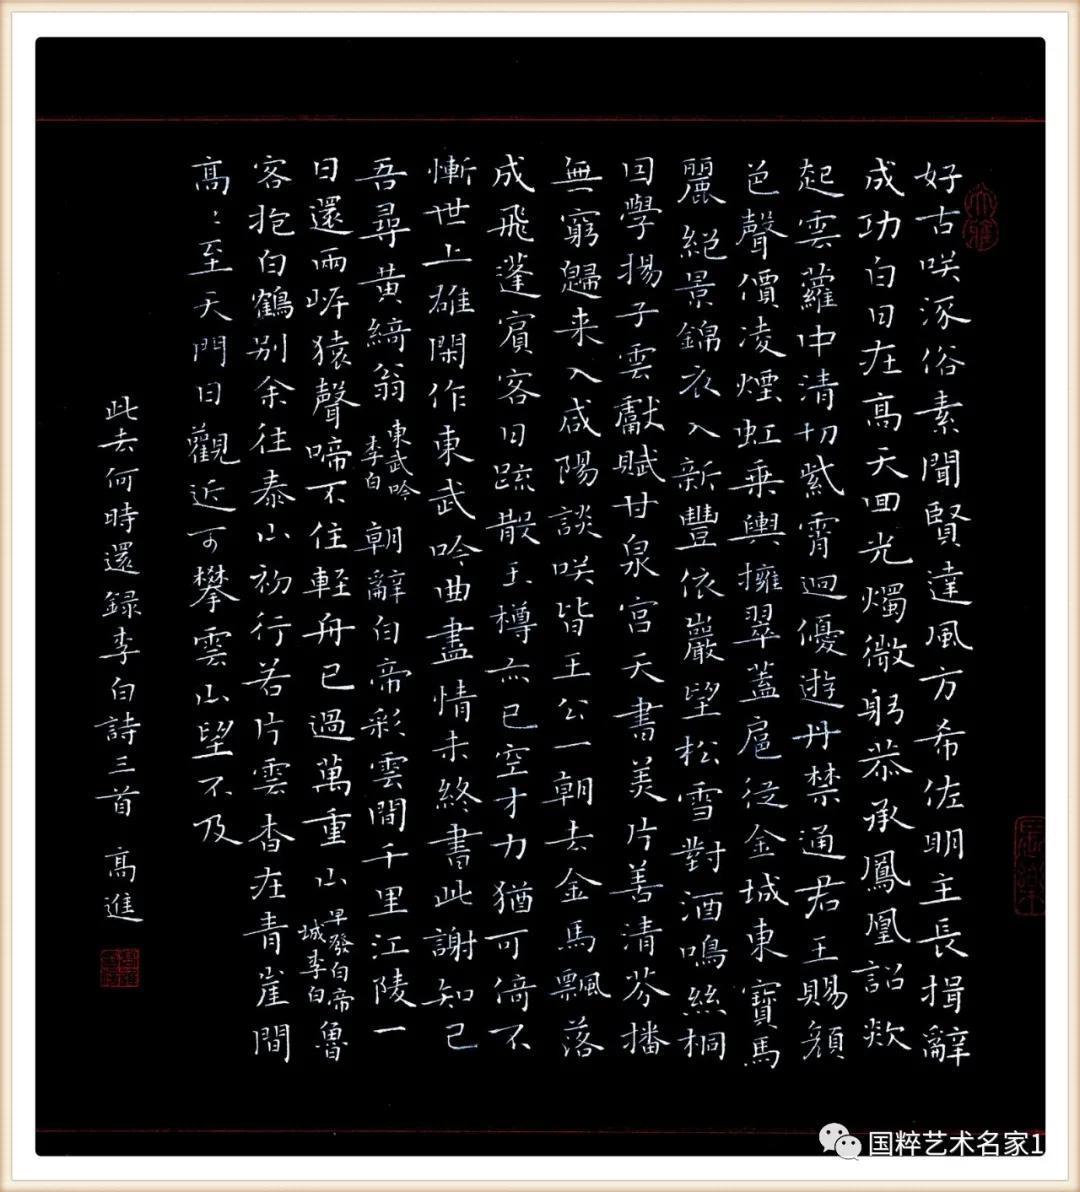 好古咲涿俗素聞賢達風方希佐明主長揖辭
成功白日在高天回光燭微躬恭承鳳凰詔欻
起雲蘿中清切紫霄迥優遊丹禁通君王賜顔
色聲價凌煙虹乗輿擁翠蓋扈從金城東寶馬
麗絕景錦衣入新豐依巖望松雪對酒鳴絲桐
因學揚子雲獻賦甘泉宮天書美片善清芬播
無窮歸来入咸陽談咲皆王公一朝去金馬飄落
成飛蓬賓客日疏散玉樽亦已空才力猶可倚不
慚世上雄閑作東武吟曲盡情未終書此謝知己
吾尋黄綺翁 東武吟李白 朝辭白帝彩雲間千里江陵一
日還兩岍猿聲啼不住輕舟已過萬重山 早發白帝城李白 魯
客抱白鶴别余往泰山初行若片雲杳在青崖間
高〻至天門日觀近可攀雲山望不及
此去何時還録李白詩三首 高進
国粹艺术名家1